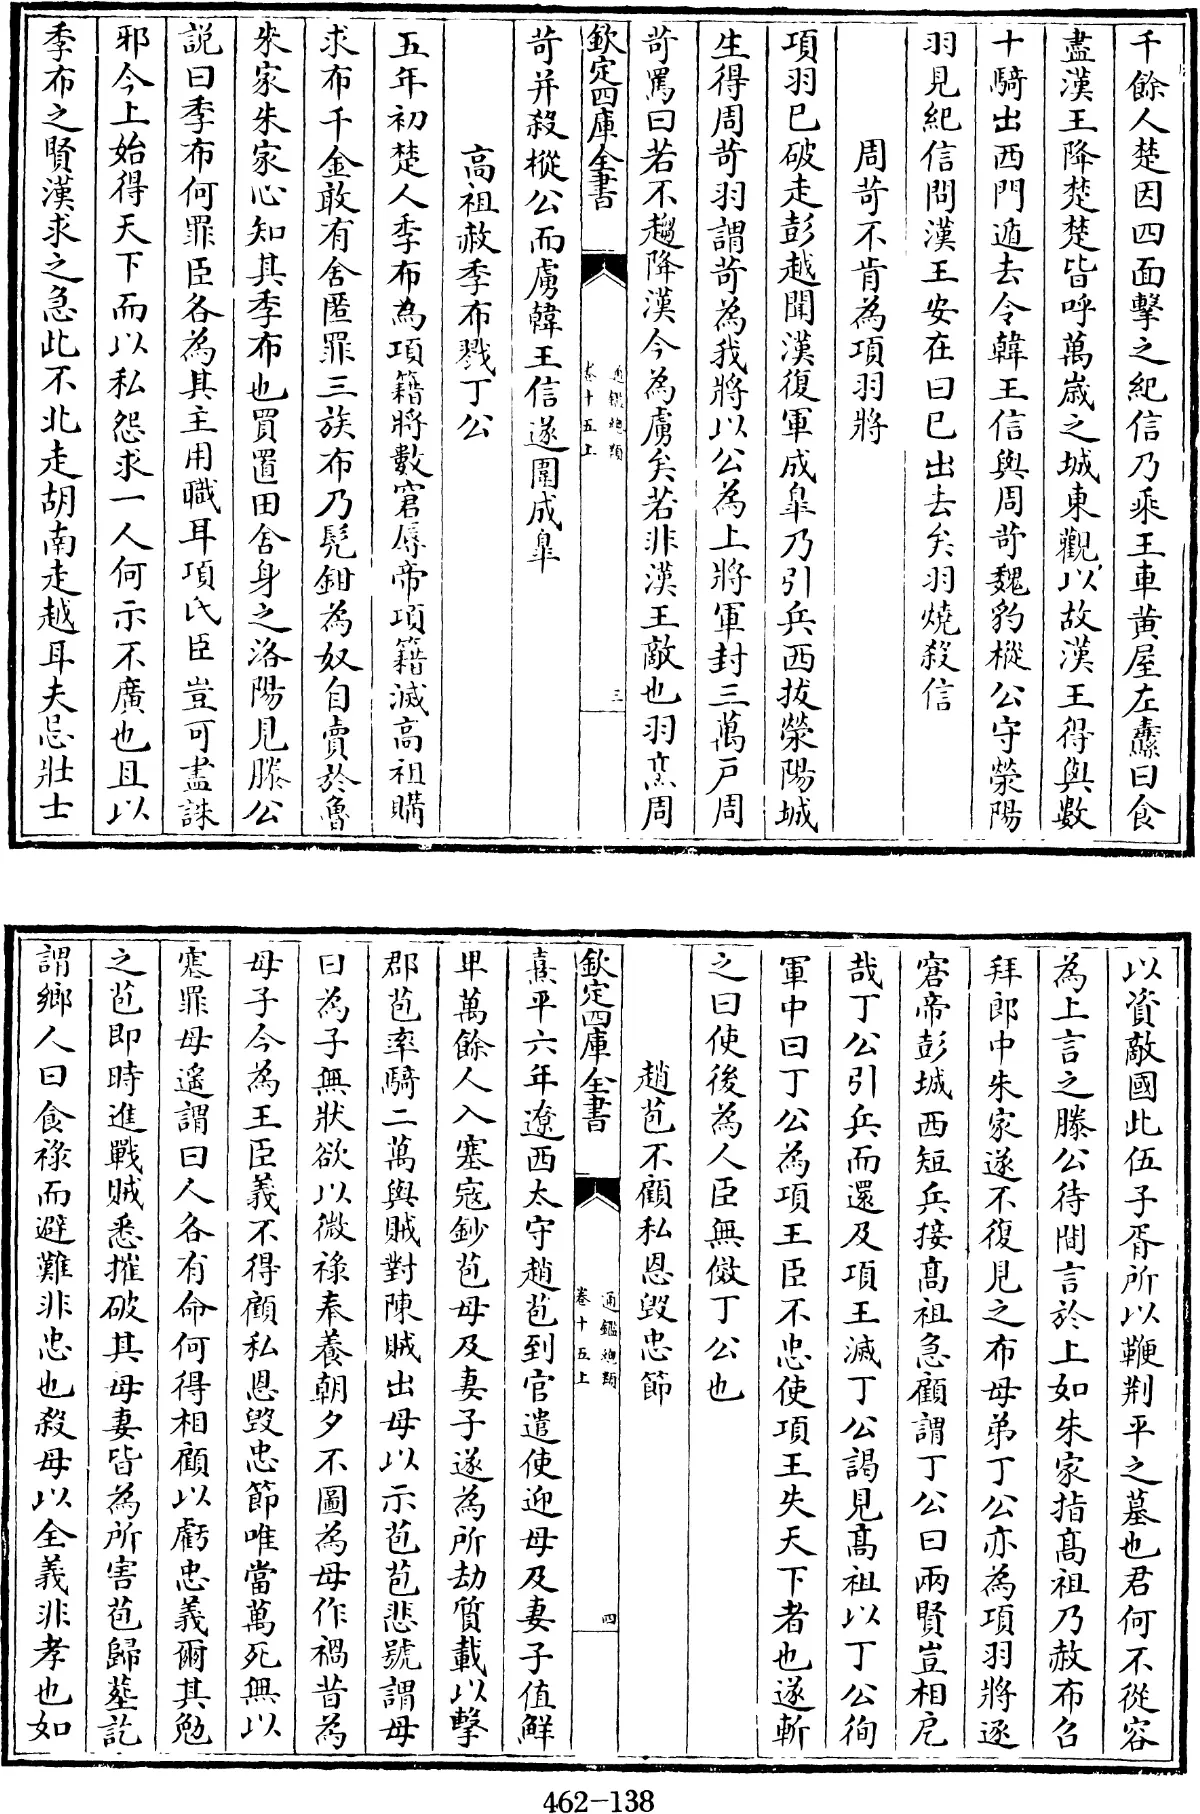 千餘人楚因四面擊之紀信乃乘王車黄屋左纛曰食
盡漢王降楚楚皆呼萬歳之城東觀以故漢王得與數
十騎出西門遁去令韓王信與周苛魏豹樅公守滎陽
羽見紀信問漢王安在曰已出去矣羽燒殺信
周苛不肯為項羽將
項羽已破走彭越聞漢復軍成臯乃引兵西拔滎陽城
生得周苛羽謂苛為我將以公為上將軍封三萬戶周
苛罵曰若不趨降漢今為虜矣若非漢王敵也羽烹周
欽定四庫全書
通鑑總類
卷十五上
三
苛并殺樅公而虜韓王信遂圍成臯
高祖赦季布戮丁公
五年初楚人季布為項籍將數窘辱帝項籍滅高祖購
求布千金敢有舍匿罪三族布乃髠鉗為奴自賣於魯
朱家朱家心知其季布也買置田舍身之洛陽見滕公
説曰季布何罪臣各為其主用職耳項氏臣豈可盡誅
邪今上始得天下而以私怨求一人何示不廣也且以
季布之賢漢求之急此不北走胡南走越耳夫忌壯士
以資敵國此伍子胥所以鞭荆平之墓也君何不從容
為上言之滕公待間言於上如朱家指髙祖乃赦布召
拜郎中朱家遂不復見之布母弟丁公亦為項羽將逐
窘帝彭城西短兵接髙祖急顧謂丁公曰兩賢豈相戹
哉丁公引兵而還及項王滅丁公謁見髙祖以丁公徇
軍中曰丁公為項王臣不忠使項王失天下者也遂斬
之曰使後為人臣無傚丁公也
趙苞不顧私恩毁忠節
欽定四庫全書
通鑑總類
卷十五上
四
熹平六年遼西太守趙苞到官遣使迎母及妻子值鮮
卑萬餘人入塞寇鈔苞母及妻子遂為所劫質載以擊
郡苞率騎二萬與賊對陳賊出母以示苞苞悲號謂母
曰為子無狀欲以微禄奉養朝夕不圖為母作禍昔為
母子今為王臣義不得顧私恩毁忠節唯當萬死無以
塞罪母遥謂曰人各有命何得相顧以虧忠義爾其勉
之苞即時進戰賊悉摧破其母妻皆為所害苞歸塟訖
謂鄉人曰食禄而避難非忠也殺母以全義非孝也如
462-138